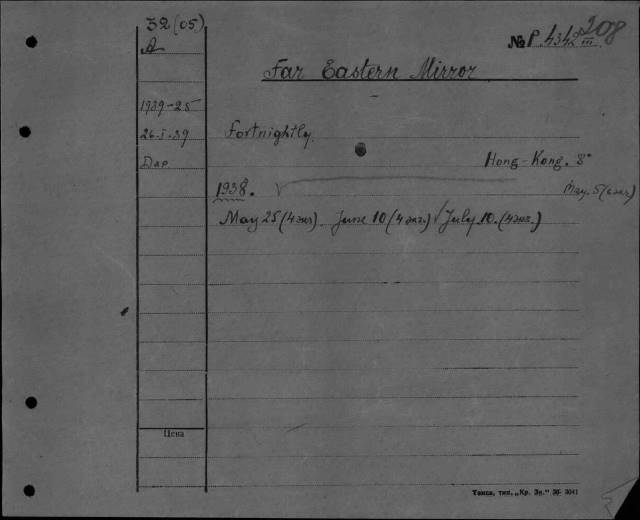 32(05)
208
A
№ P.434
III
Far Eastern Mirror
1939-25
26-I-39
Fortnightly.
Дар
Hong-Kong. 8°
1938.
May. 5 (4 экз)
May 25 (4 экз) June 10 (4 экз.) √ July 10. (4 экз.)
Цена